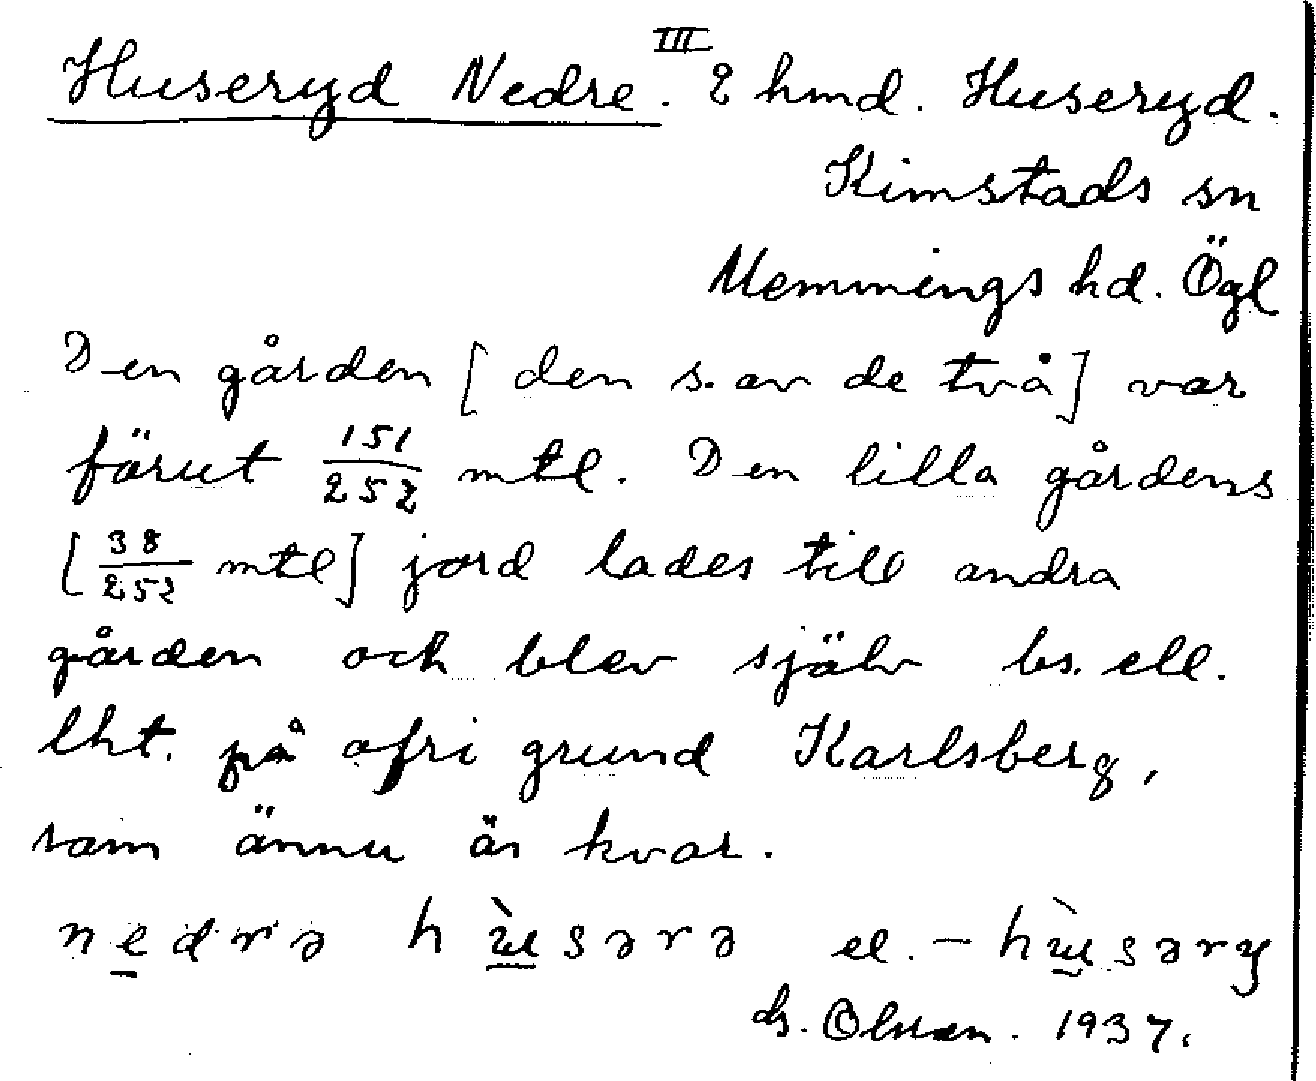 Huseryd Nedre. III 2 hmd. Huseryd.
Kimstads sn
Memmings hd. Ögl
Den gården [den s. av de två] var
förut 151/252 mtl. Den lilla gårdens
[38/252 mtl] jord lades till andra
gården och blev själv bs. ell.
lht. på ofri grund Karlsberg,
som ännu är kvar.
nedrə hùsərə el. – hùsəry
Olsson. 1937.